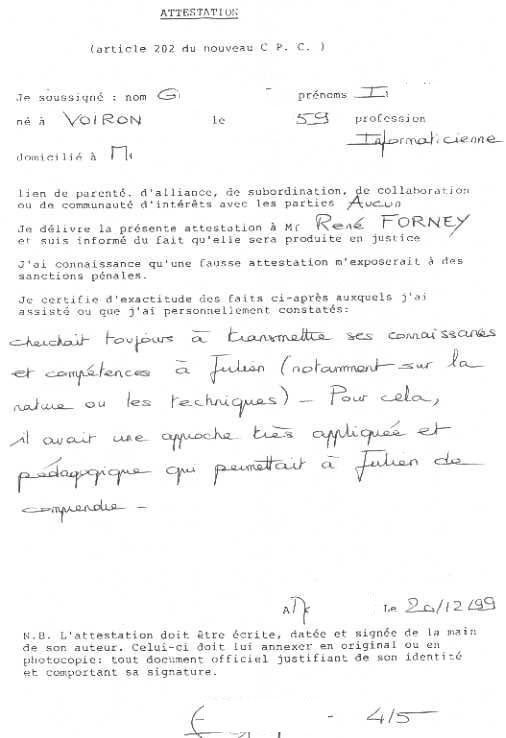 ATTESTATION
(article 202 du nouveau C P. C. )
Je soussigné : nom G prénoms I
né à VOIRON le 59 profession
Informaticienne
domicilié à M
lien de parenté. d'alliance, de subordination, de collaboration
ou de communauté d'intérêts avec les parties Aucun
Je délivre la présente attestation à Mr René FORNEY
et suis informé du fait qu'elle sera produite en justice
J'ai connaissance qu'une fausse attestation m'exposerait à des
sanctions pénales.
Je certifie d'exactitude des faits ci-après auxquels j'ai
assisté ou que j'ai personnellement constatés:
cherchait toujours à transmettre ses connaissances
et compétences à Julien (notamment sur la
nature ou les techniques) - Pour cela,
il avait une approche très appliquée et
pédagogique qui permettait à Julien de
comprendre -
A Le 20/12/99
N.B. L'attestation doit être écrite, datée et signée de la main
de son auteur. Celui-ci doit lui annexer en original ou en
photocopie: tout document officiel justifiant de son identité
et comportant sa signature.
- 4/5